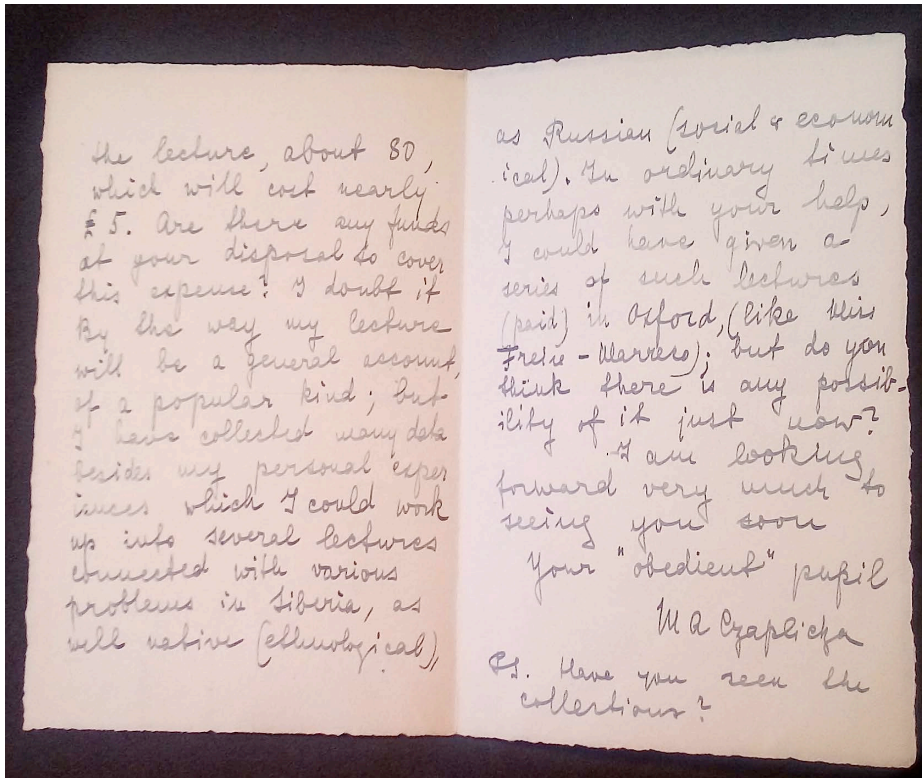 the lecture, about 80,
which will cost nearly
£ 5. Are there any funds
at your disposal to cover
this expense? I doubt it
By the way my lecture
will be a general account,
of a popular kind; but
I have collected many data
besides my personal exper
iences which I could work
up into several lectures
connected with various
problems in Siberia, as
well native (ethnological),
as Russian (social & econom
ical). In ordinary times
perhaps with your help,
I could have given a
series of such lectures
(paid) in Oxford, (like this
Freire - Marreco); but do you
think there is any possib-
ility of it just now?
I am looking
forward very much to
seeing you soon
Your "obedient" pupil
M A Czaplicka
PS. Have you seen the
collections?